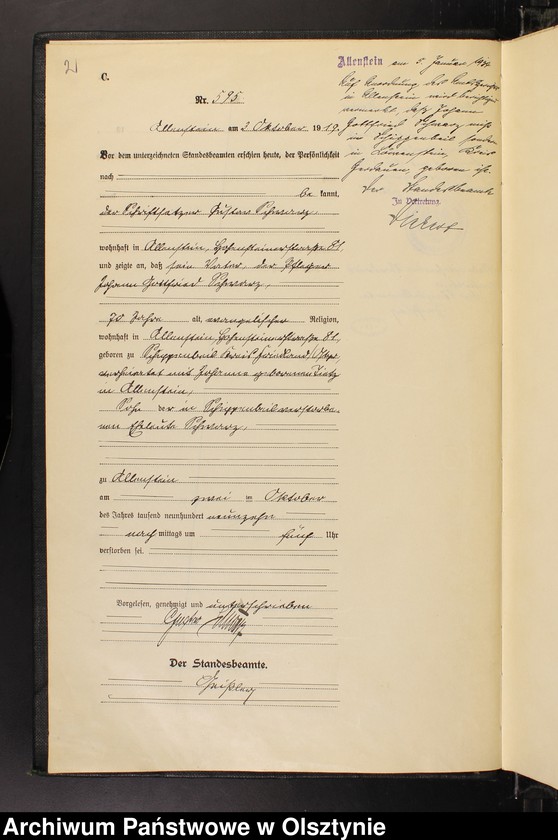 21
C.
Nr. 595.
Allenstein am 3. Oktober 1919.
Vor dem unterzeichneten Standesbeamten erschien heute, der Persönlichkeit
nach
be kannt,
der Schriftsetzer Gustav Schwarz,
wohnhaft in Allenstein, Hohensteinerstraße 81,
und zeigte an, daß sein Vater, der Pfleger
Johann Gottfried Schwarz,
70 Jahre alt, evangelischer Religion,
wohnhaft in Allenstein, Hohensteinerstraße 81,
geboren zu Schippenbeil Kreis Friedland,
verheiratet mit Johanne geborenen
in Allenstein,
Sohn der in Schippenbeil verstorbe-
nen Eheleute Schwarz,
zu Allenstein
am zwei ten Oktober
des Jahres tausend neunhundert neunzehn
nach mittags um fünf Uhr
verstorben sei.
Vorgelesen, genehmigt und unterschrieben
Gustav Schwarz
Der Standesbeamte.
Allenstein am 5. Januar
Auf Anordnung des Amtsgerichts
in Allenstein wird berichtigend
vermerkt, daß Johann
Gottfried Schwarz nicht
in Schippenbeil sondern
in Löwenstein, Kreis
Gerdauen, geboren ist.
Der Standesbeamte
In Vertretung
Archiwum Państwowe w Olsztynie